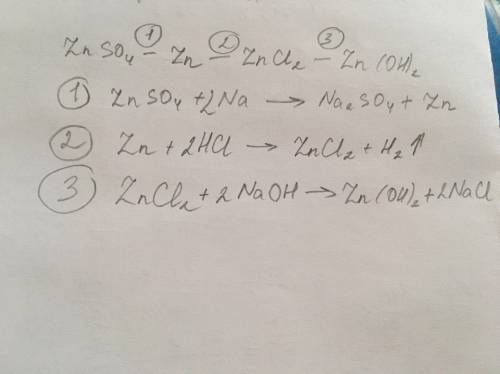 ZnSO₄ –① Zn –② ZnCl₂ –③ Zn(OH)₂
① ZnSO₄ + 2Na → Na₂SO₄ + Zn
② Zn + 2HCl → ZnCl₂ + H₂↑
③ ZnCl₂ + 2NaOH → Zn(OH)₂ + 2NaCl